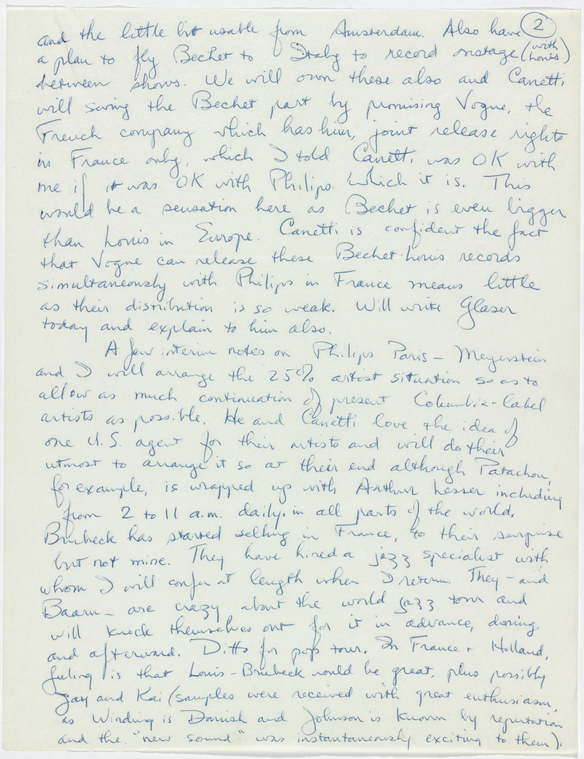 2
and the little bit usable from Amsterdam. Also have
a plan to fly Bechet to Italy to record onstage (with Louis)
between shows. We will own these also and Canetti
will swing the Bechet part by promising Vogue, the
French company which has him, joint release rights
in France only, which I told Canetti was OK with
me if it was OK with Philips. Which it is. This
would be a sensation here as Bechet is even bigger
than Louis in Europe. Canetti is confident the fact
that Vogue can release these Bechet-Louis records
simultaneously with Philips in France means little
as their distribution is so weak. Will write Glaser
today and explain to him also.
A few interim notes on Philips Paris – Meyerstein
and I will arrange the 25% artist situation so as to
allow as much continuation of present Columbia-label
artists as possible. He and Canetti love the idea of
one U.S. agent for their artists and will do their
utmost to arrange it so at their end although Patachou,
for example, is wrapped up with Arthur Lesser including
from 2 to 11 a.m. daily, in all parts of the world.
Brubeck has started selling in France, to their surprise
but not mine. They have hired a jazz specialist with
whom I will confer at length when I return. They – and
Baarn – are crazy about the world jazz tour and
will knock themselves out for it in advance, during,
and afterward. Ditto for pop tour. In France + Holland,
feeling is that Louis-Brubeck would be great, plus possibly
Jay and Kai (samples were received with great enthusiasm,
as Winding is Danish and Johnson is known by reputation
and the "new sound" was instantaneously exciting to them).